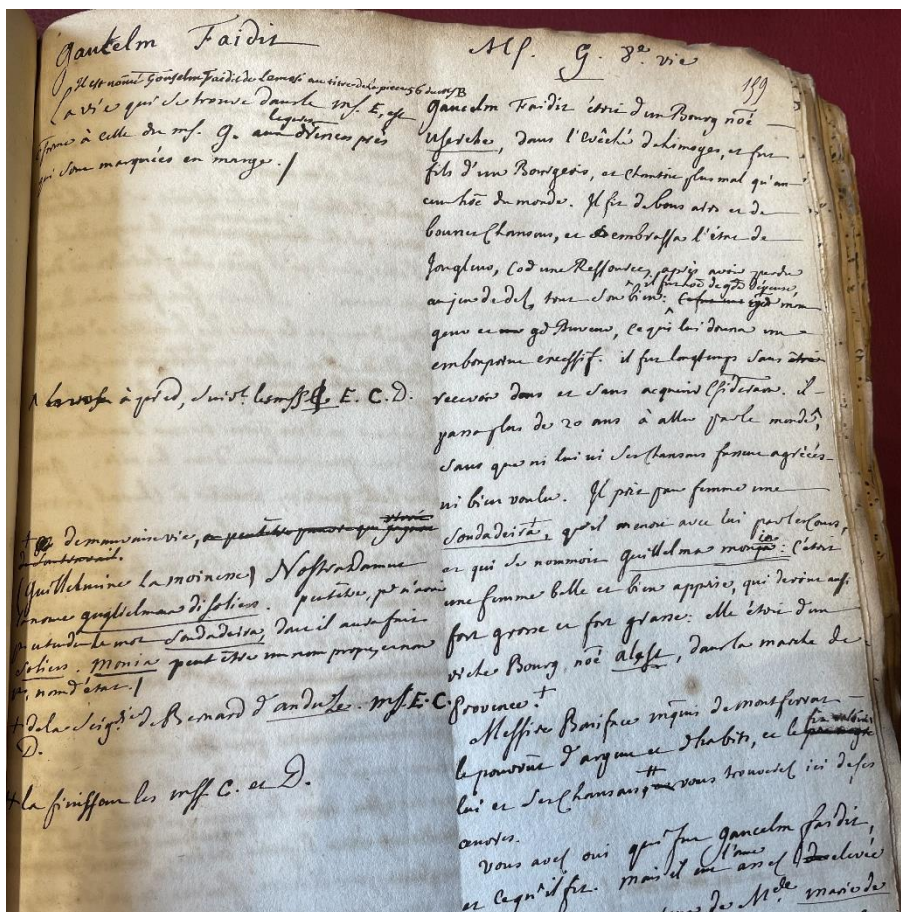 Gaucelm Faidit
Il est nommé Gonselm Faidit de Lemosi au titre de la piece 56 du ms B
La vie qui se trouve dans le ms. E, est
à celle du ms. G. aux legeres differences près
qui sont marquées en marge. /
^ à pied, suivt. les mss. E. C. D.
+ de mauvaise vie,
(Guillelmine la moinesse) Nostradamus
la nomme guglielmona di soliers. peutêtre, pr. n'avoir
entendu le mot soudadeira, dont il aura fait
soliers. monia peut être un nom propre, et non
un nom d'état. /
+ de la Seigrie de Bernard d'anduze. mss. E. C.
D.
+ la finissent les mss. C. et D.
Ms. G. 8e. vie
159
Gaucelm Faidit étoit d'un Bourg nõé
Userche, dans l'Evêché de Limoges, et fut
fils d'un Bourgeois, et chantoit plus mal qu'au
cun hõe du monde. Il fit de bons airs et de
bonnes Chansons, et embrassa l'état de
Jongleur, co͞e une Ressource, après avoir perdu
au jeu de dez, tout son bien. il fut hõe de gde. dépense,
geur et gd. Buveur, ce qui lui donna un
embonpoint excessif. il fut longtemps sans
recevoir dons et sans acquerir Considéraon. il
passa plus de 20 ans à aller par le monde^,
sans que ni lui ni ses Chansons fussent agréées
ni bien voulu. Il prit pour femme une
Soudadeira+, qu'il menoit avec lui par les Cours,
et qui se nommoit Guillelma monja: C'étoit
une femme belle et bien apprise, qui devint aussi
fort grosse et fort grasse: elle étoit d'un
riche Bourg nõé alest, dans la marche de
Provence.+
Messire Boniface mquis de montferrat
le pourvut d'argent et d'habits, et le
lui et ses Chansons++ vous trouverez ici de ses
œuvres.
Vous avez oui qui fut gaucelm faidit,
et ce qu'il fit. mais il eut l'ame assez elevée
de Mde. marie de